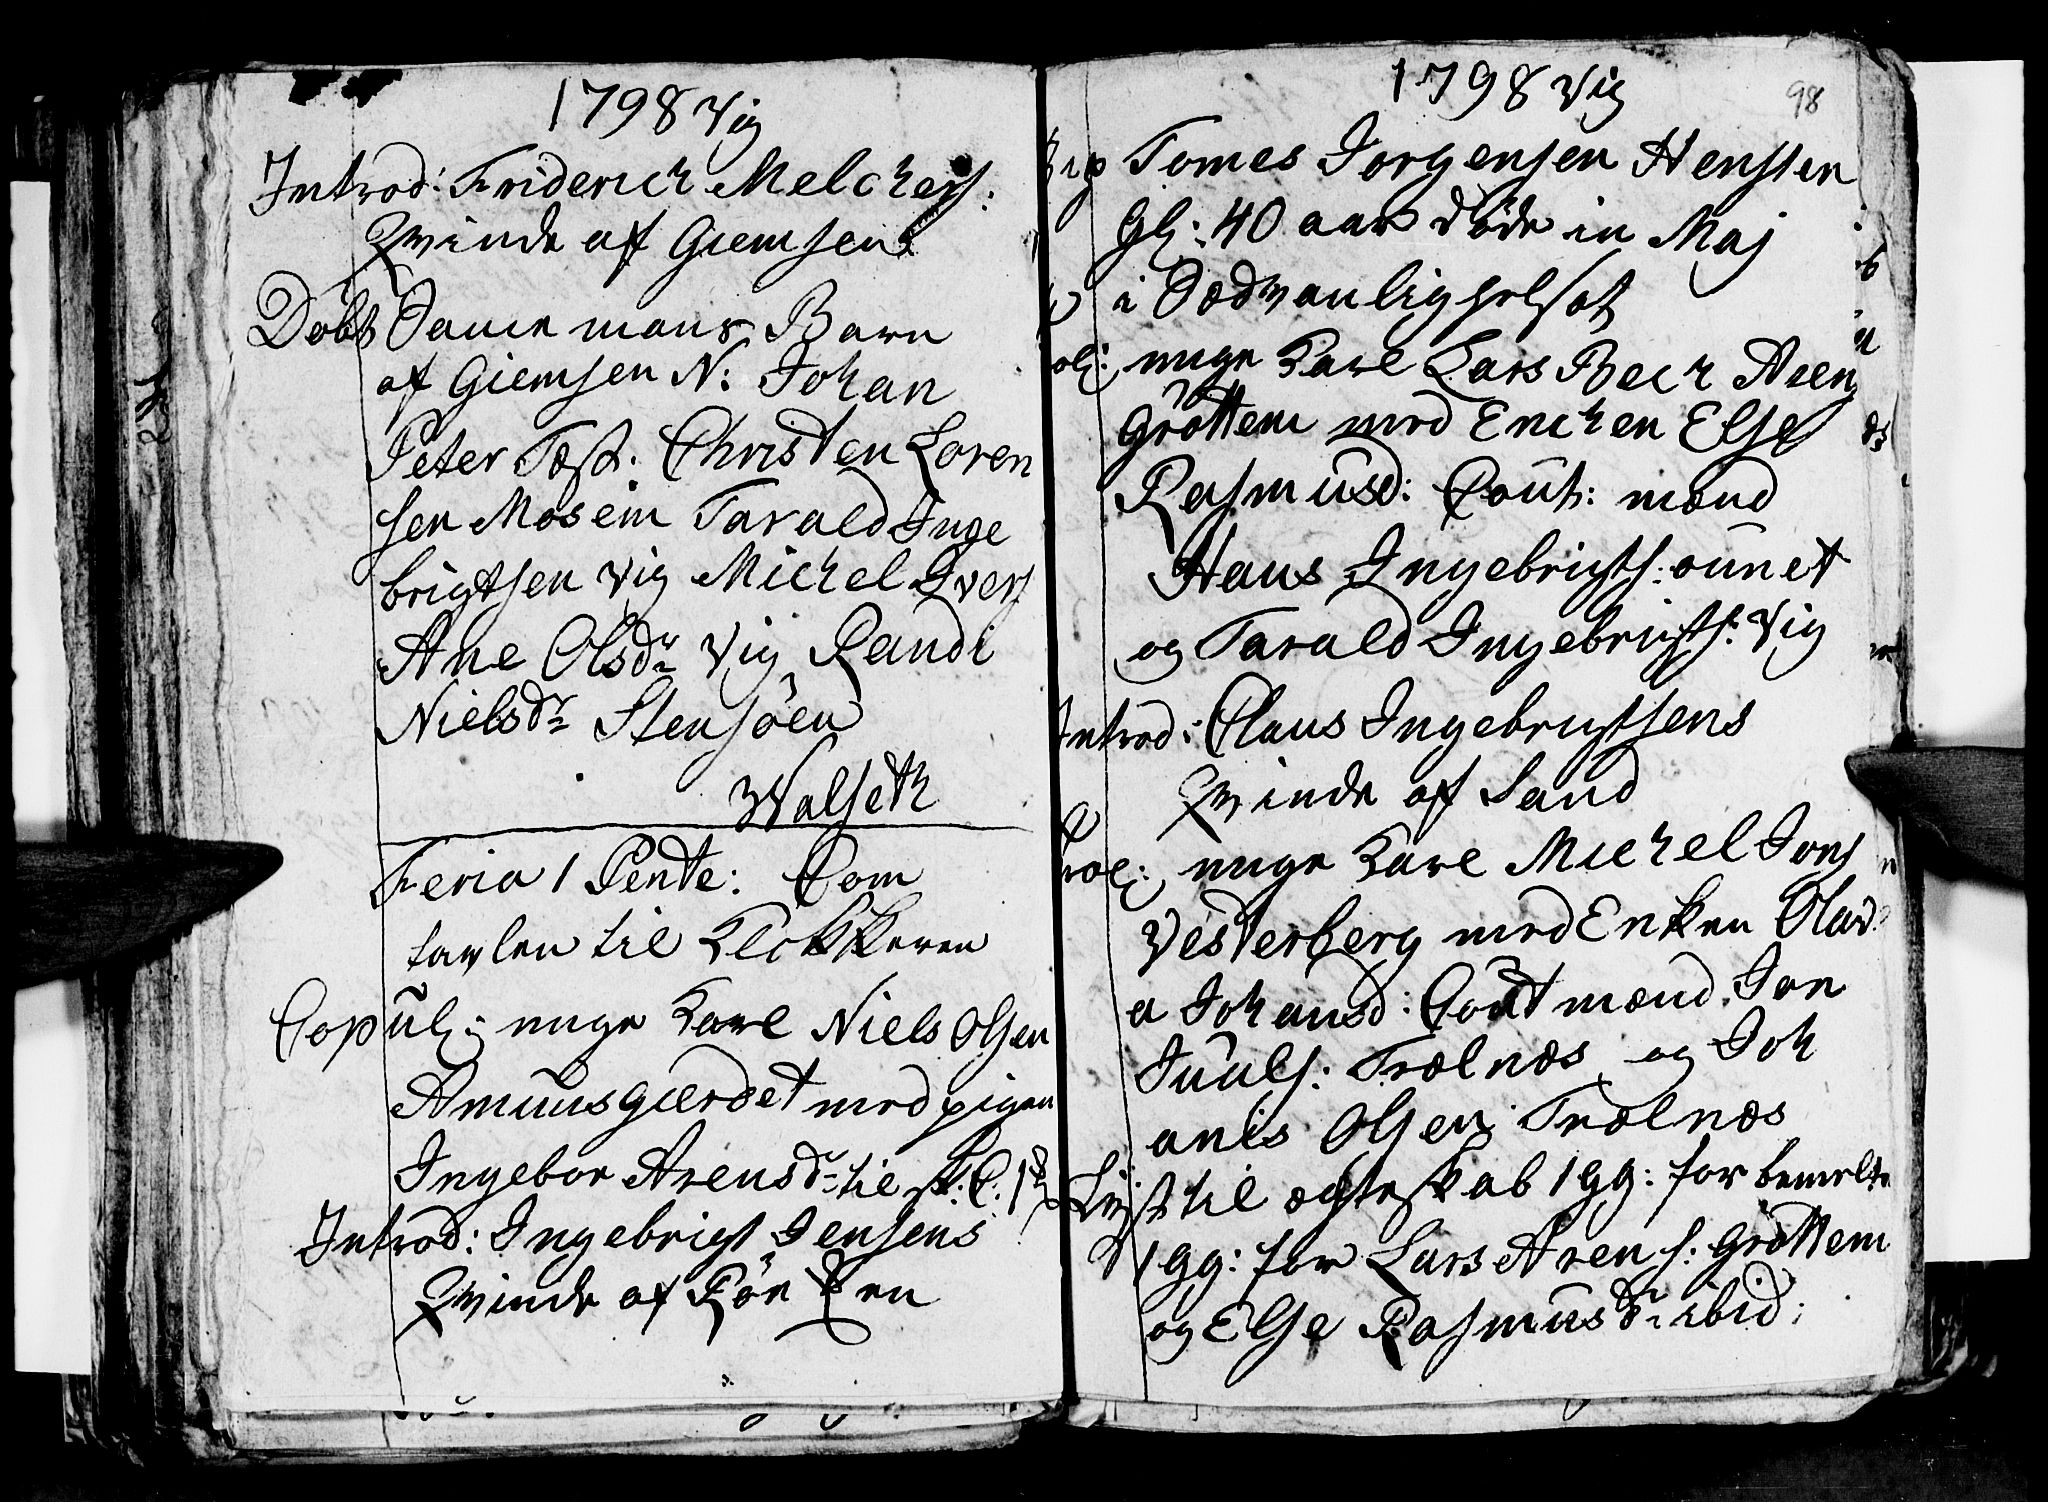 1798 Vig
Introd: Friderich Melchers:
Qvinde af Giemsen
Døbt Same mans Barn
af Giemsen N: Johan
Peter Test: Christen Loren
sen Mosein Tarald Inge
brigtsen Vig Michel Ivers
Ane Olsdr Vig Randi
Nielsdr Stensöen
Walseth
Feria 1 Pente: Com
tavlen til Klokkeren
Copul: unge Karl Niels Olsen
Amunsgierdet med pigen
Ingebor Arensdr til
Introd: Ingebrigt Jensens
Qvinde af
1798 Vig
98
Tomes Jorgensen Henssen
Gl: 40 aar døde in Maj
i Sædvanlighelsot
unge Karl Lars Bech Aren
Gröttem med Enchen Else
Rasmusd: Cout: mænd
Hans Ingebrigts: aunet
og Tarald Ingebrigts: Vig
Introd: Claus Ingebrigtsens
Qvinde af Sand
unge Karl Michel Jons
Vesterberg med Enken Olav
a Johansd: Cout mænd Jon
Juuls: Trælnæs og Joh
anis Olsen Trælnæs
Lyst til ægteskab 1 gg: for bemelte
1 gg: for Lars Aren s: Gröttem
og Else Rasmusdr ibid: